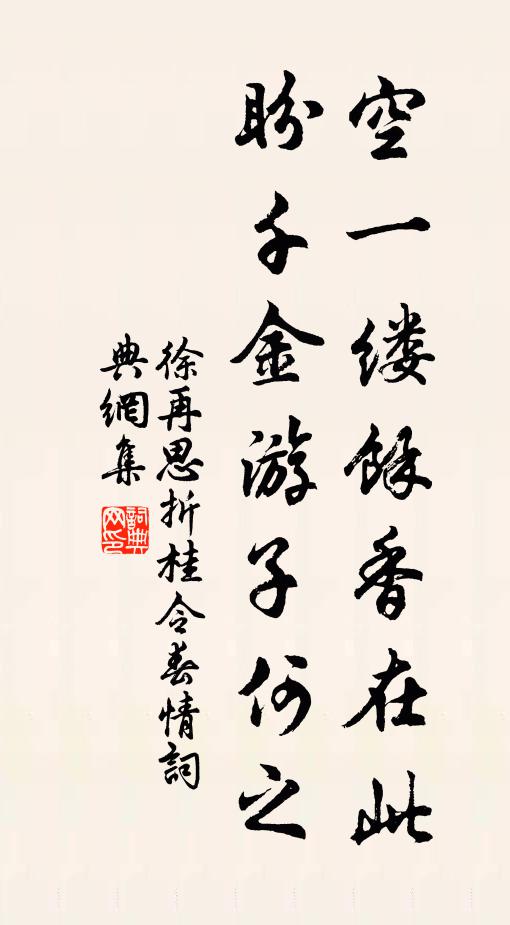 空一缕餘香在此
盼千金游子何之
徐再思折桂令春情詞
典網集
詞典网印